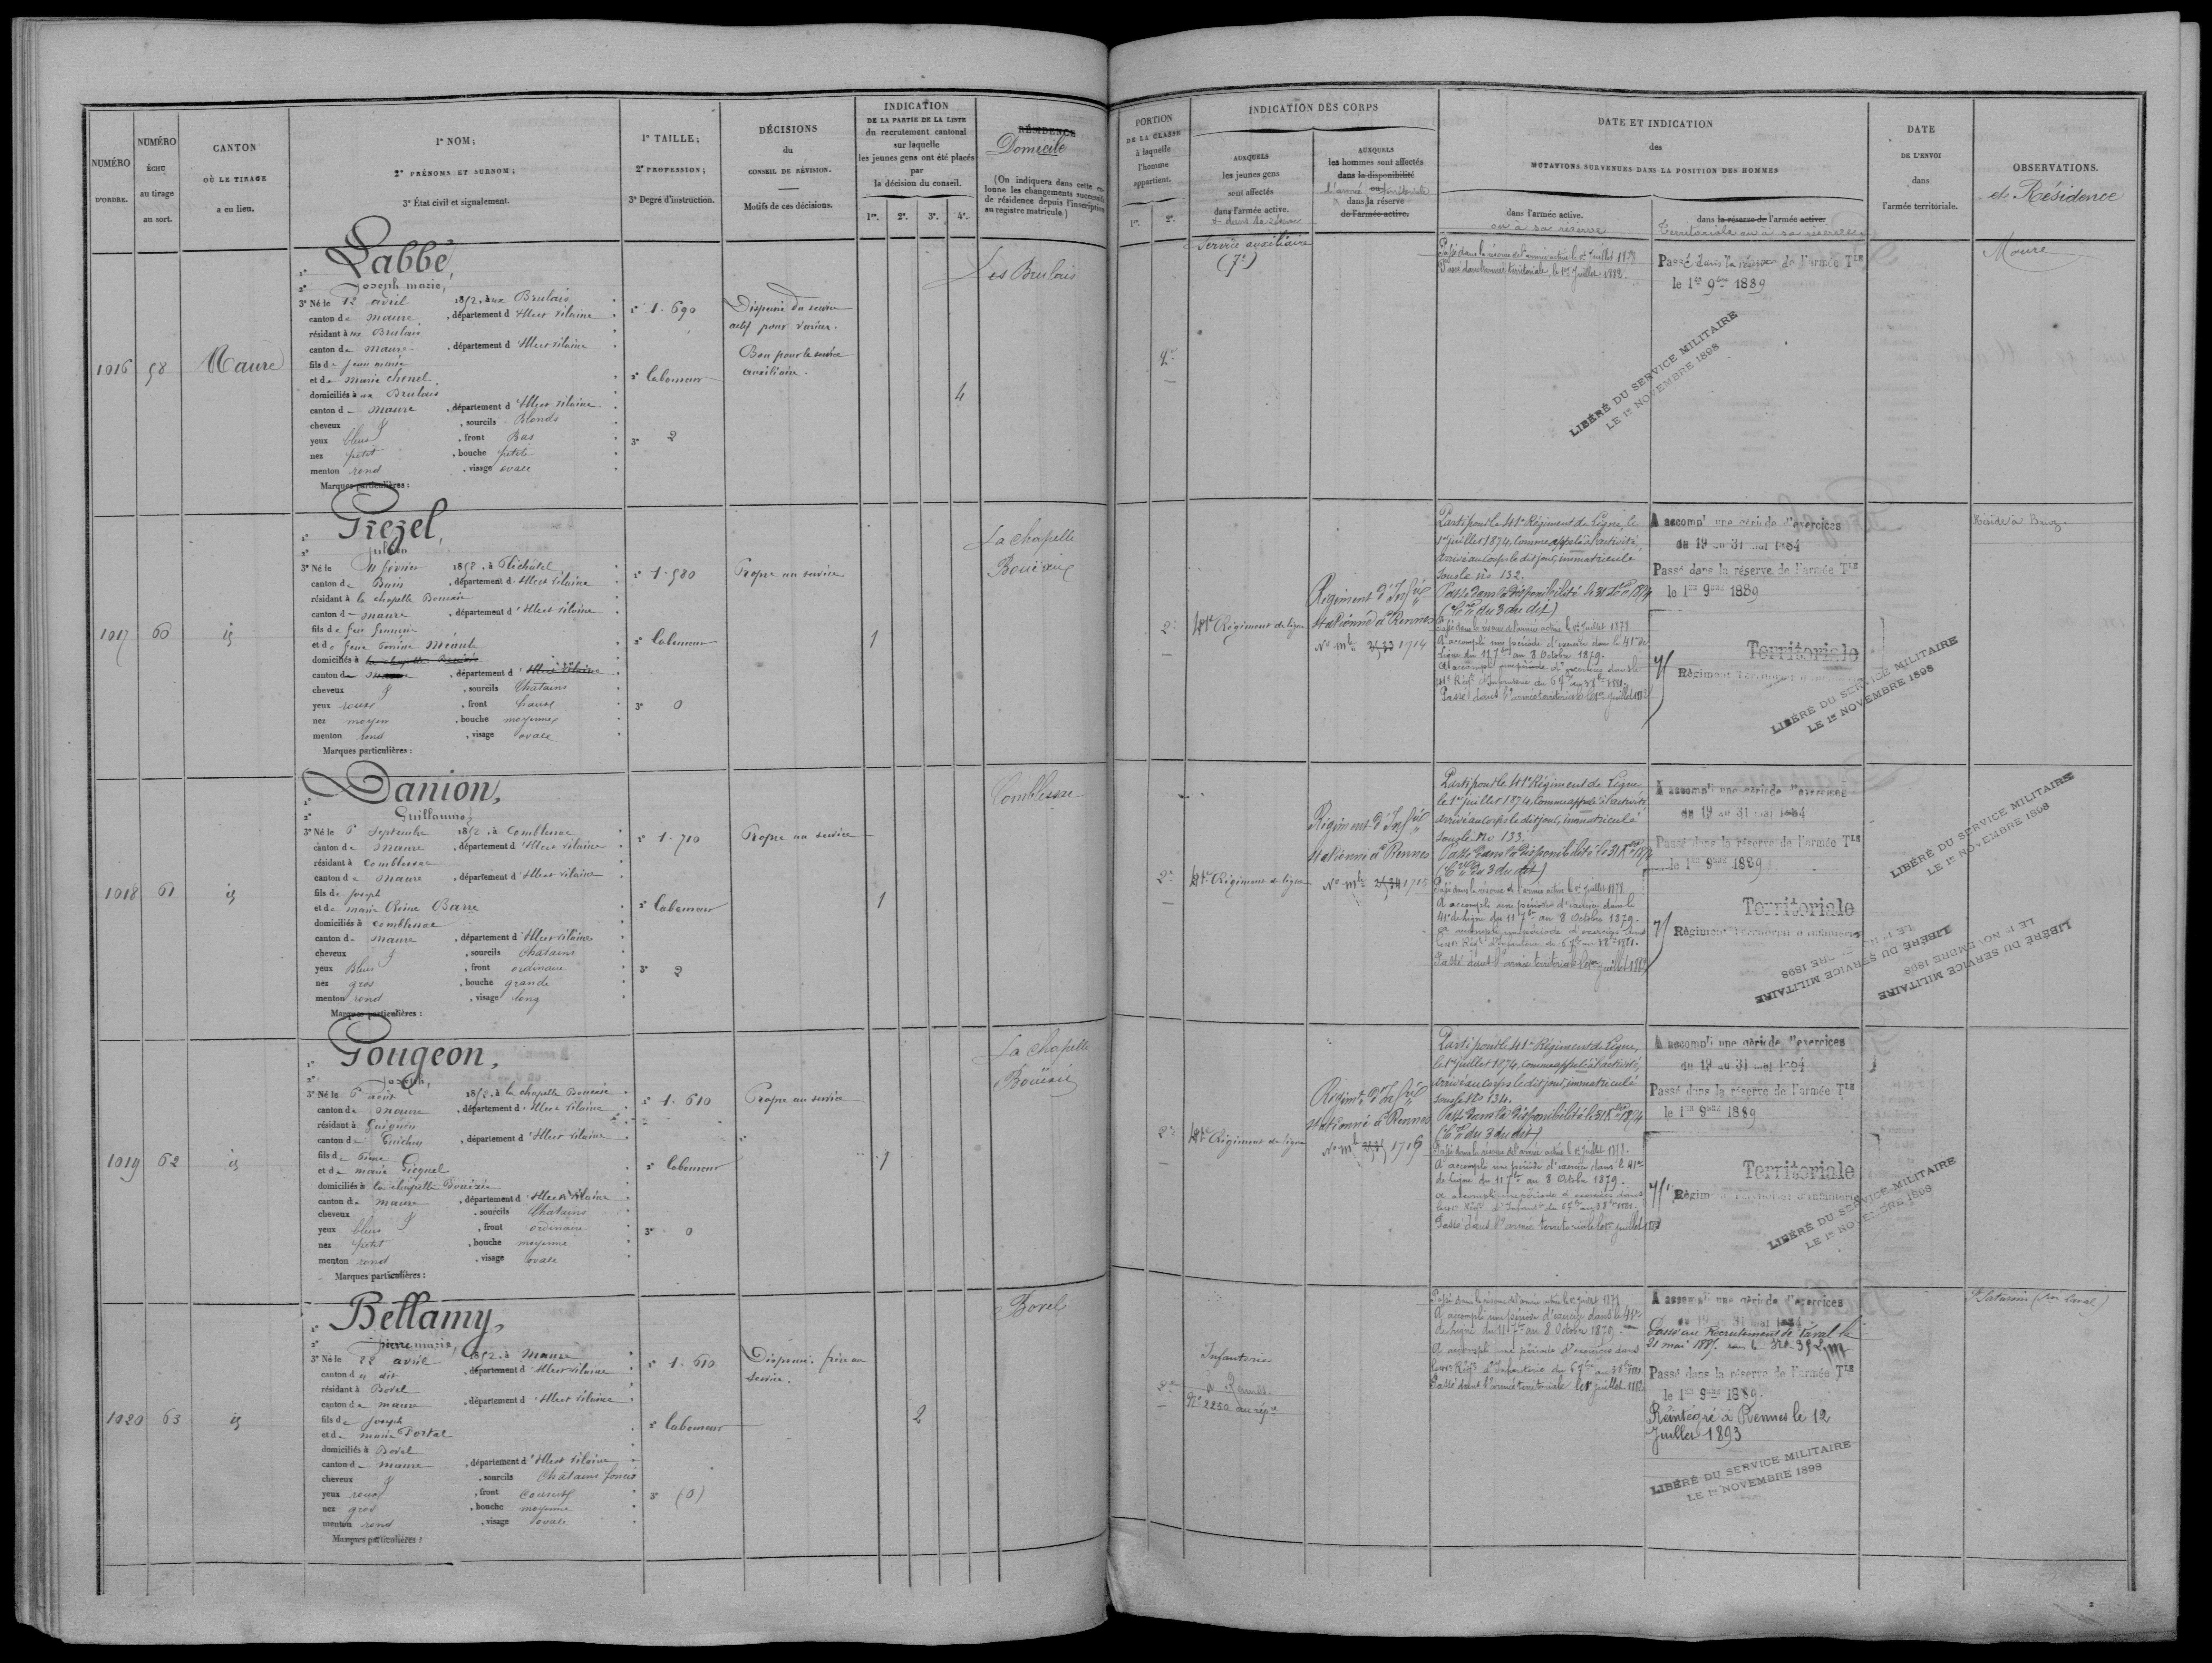 NUMÉRO D'ORDRE.
NUMÉRO ÉCHU au tirage au sort.
CANTON OÙ LE TIRAGE a eu lieu.
1° NOM;
2° PRÉNOMS ET SURNOM;
3° État civil et signalement.
1° TAILLE;
2° PROFESSION;
3° Degré d'instruction.
DÉCISIONS
du
CONSEIL DE RÉVISION.
Motifs de ces décisions.
INDICATION
DE LA PARTIE DE LA LISTE
du recrutement cantonal
sur laquelle
les jeunes gens ont été placés
par
la décision du conseil.
1re. 2e. 3e. 4e.
RÉSIDENCE
Domicile
(On indiquera dans cette colonne les changements successifs de résidence depuis l'inscription au registre matricule.)
PORTION
DE LA CLASSE
à laquelle
l'homme
appartient.
1re. 2e.
INDICATION DES CORPS
AUXQUELS
les jeunes gens
sont affectés
dans l'armée active.
AUXQUELS
les hommes sont affectés
dans la disponibilité
ou
l'armée territoriale
dans la réserve
de l'armée active.
DATE ET INDICATION
des
MUTATIONS SURVENUES DANS LA POSITION DES HOMMES
dans l'armée active.
ou à sa réserve
dans la réserve de l'armée active.
Territoriale ou à sa réserve
DATE
DE L'ENVOI
dans
l'armée territoriale.
OBSERVATIONS.
et Résidence
1016 58 Maure
1° Labbé,
2° Joseph marie,
3° Né le 12 avril 1852, à ux Brulais
canton de maure, département d'Ille et vilaine
résidant à ux Brulais
canton de maure, département d'Ille et vilaine
fils de Jean marie
et de marie Chenel
domiciliés à ux Brulais
canton de maure, département d'Ille et vilaine
cheveux &, sourcils Blonds
yeux bleus, front Bas
nez petit, bouche petite
menton rond, visage ovale
Marques particulières:
1° 1.690
2° laboureur
3° 2
Dispensé du service
actif pour varices.
Bon pour le service
auxiliaire.
4
Les Brulais
2e
Service auxiliaire
(7e)
Passé dans la réserve de l'armée active le 1er juillet 1879
Passé dans l'armée territoriale, le 1er Juillet 1882.
Passé dans la réserve de l'armée Tle
le 1er 9bre 1889
LIBÉRÉ DU SERVICE MILITAIRE
LE 1er NOVEMBRE 1898
Maure
1017 60 id
1° Prezel,
2° Julien
3° Né le 11 février 1852, à Pléchâtel
canton de Bain, département d'Ille et vilaine
résidant à la chapelle Bouexic
canton de maure, département d'Ille et vilaine
fils de feu francois
et de feue Perrine Méaule
domiciliés à la chapelle Bouexic
canton de maure, département d'Ille et vilaine
cheveux &, sourcils Chatains
yeux roux, front haut
nez moyen, bouche moyenne
menton rond, visage ovale
Marques particulières:
1° 1.580
2° laboureur
3° 0
Propre au service
1
La chapelle
Bouëxic
2e
41e Régiment de ligne
Régiment d'Infie
stationné à Rennes
No mle 2533 1714
Parti pour le 41e Régiment de Ligne, le
1er juillet 1874, comme appelé à l'activité,
arrivé au corps le dit jour, immatriculé
sous le no 132.
Passé dans la disponibilité le 31 Xbre 1874
(Cre du 3 du dit)
Passé dans la réserve de l'armée active le 1er Juillet 1879
A accompli une période d'exercice dans le 41e de
Ligne du 11 7bre au 8 Octobre 1879.
A accompli une période d'exercices dans le
41e Régt d'Infanterie du 6 7bre au 3 8bre 1881.
Passé dans l'armée territoriale le 1er juillet 1882
A accompli une période d'exercices
du 19 au 31 mai 1884
Passé dans la réserve de l'armée Tle
le 1er 9bre 1889
Territoriale
Régiment Territorial d'Infanterie
LIBÉRÉ DU SERVICE MILITAIRE
LE 1er NOVEMBRE 1898
Réside à Bruz.
1018 61 id
1° Danion,
2° Guillaume,
3° Né le 6 Septembre 1852, à Comblessac
canton de maure, département d'Ille et vilaine
résidant à Comblessac
canton de maure, département d'Ille et vilaine
fils de Joseph
et de marie Reine Barre
domiciliés à Comblessac
canton de maure, département d'Ille et vilaine
cheveux &, sourcils Chatains
yeux Bleus, front ordinaire
nez gros, bouche grande
menton rond, visage long
Marques particulières:
1° 1.710
2° laboureur
3° 2
Propre au service
1
Comblessac
2e
41e Régiment de ligne
Régiment d'Infie
stationné à Rennes
No mle 2534 1715
Parti pour le 41e Régiment de Ligne
le 1er juillet 1874, comme appelé à l'activité
arrivé au corps le dit jour, immatriculé
sous le No 133.
Passé dans la disponibilité le 31 Xbre 1874
(Cre du 3 du dit)
Passé dans la réserve de l'armée active le 1er Juillet 1879
A accompli une période d'exercice dans le
41e de ligne du 11 7bre au 8 Octobre 1879.
A accompli une période d'exercices dans
le 41e Régt d'Infanterie du 6 7bre au 3 8bre 1881.
Passé dans l'armée territoriale le 1er juillet 1882
A accompli une période d'exercices
du 19 au 31 mai 1884
Passé dans la réserve de l'armée Tle
le 1er 9bre 1889
Territoriale
Régiment Territorial d'Infanterie
LIBÉRÉ DU SERVICE MILITAIRE
LE 1er NOVEMBRE 1898
LIBÉRÉ DU SERVICE MILITAIRE
LIBÉRÉ DU SERVICE MILITAIRE
LE 1er NOVEMBRE 1898
1019 62 id
1° Pougeon,
2° Joseph,
3° Né le 6 août 1852, à la chapelle Bouexic
canton de maure, département d'Ille et vilaine
résidant à Guignen
canton de Guichen, département d'Ille et vilaine
fils de Pierre
et de marie Picquel
domiciliés à la chapelle Bouëxic
canton de maure, département d'Ille et vilaine
cheveux &, sourcils Chatains
yeux bleus, front ordinaire
nez petit, bouche moyenne
menton rond, visage ovale
Marques particulières:
1° 1.610
2° laboureur
3° 0
Propre au service
1
La Chapelle
Bouëxic
2e
41e Régiment de ligne
Régimt d'Infie
stationné à Rennes
No mle 2535 1716
Parti pour le 41e Régiment de Ligne,
le 1er juillet 1874, comme appelé à l'activité,
arrivé au corps le dit jour, immatriculé
sous le No 134.
Passé dans la disponibilité le 31 Xbre 1874
(Cre du 3 du dit)
Passé dans la réserve de l'armée active le 1er Juillet 1879.
A accompli une période d'exercice dans le 41e
de Ligne du 11 7bre au 8 Octobre 1879.
A accompli une période d'exercices dans
le 41e Régt d'Infanterie du 6 7bre au 3 8bre 1881.
Passé dans l'armée territoriale le 1er juillet 1882
A accompli une période d'exercices
du 19 au 31 mai 1884
Passé dans la réserve de l'armée Tle
le 1er 9bre 1889
Territoriale
Régiment Territorial d'Infanterie
LIBÉRÉ DU SERVICE MILITAIRE
LE 1er NOVEMBRE 1898
1020 63 id
1° Bellamy,
2° pierre marie,
3° Né le 22 avril 1852, à Maure
canton du dit, département d'Ille et vilaine
résidant à Bovel
canton de maure, département d'Ille et vilaine
fils de Joseph
et de marie Portal
domiciliés à Bovel
canton de maure, département d'Ille et vilaine
cheveux &, sourcils Chatains foncés
yeux roux, front couvert
nez gros, bouche moyenne
menton rond, visage ovale
Marques particulières:
1° 1.610
2° laboureur
3° (0)
Dispensé. frère au
service.
2
Bovel
2e
Infanterie
à Rennes
No 2250 au répre
Passé dans la réserve de l'armée active le 1er juillet 1879
A accompli une période d'exercice dans le 41e
de Ligne du 11 7bre au 8 Octobre 1879.
A accompli une période d'exercices dans
le 41e Régt d'Infanterie du 6 7bre au 3 8bre 1881.
Passé dans l'armée territoriale le 1er juillet 1882
A accompli une période d'exercices
du 19 au 31 mai 1884
Passé au Recrutement de Laval le
21 mai 1887. sous le No 392
Passé dans la réserve de l'armée Tle
le 1er 9bre 1889.
Réintégré à Rennes le 12
Juillet 1893
LIBÉRÉ DU SERVICE MILITAIRE
LE 1er NOVEMBRE 1898